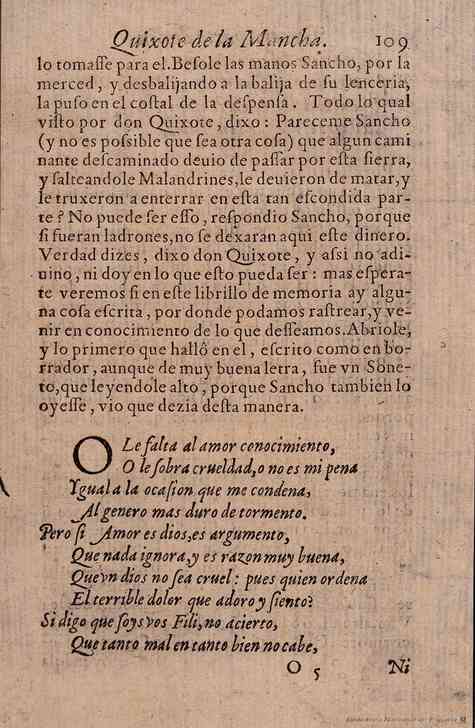 Quixote de la Mancha. 109
lo tomaſſe para el. Beſole las manos Sancho, por la
merced, y desbalijando a la balija de ſu lenceria,
la puſo en el coſtal de la deſpenſa. Todo lo qual
viſto por don Quixote, dixo: Pareceme Sancho
(y no es poſsible que ſea otra coſa) que algun cami
nante deſcaminado deuio de paſſar por eſta ſierra,
y ſalteandole Malandrines, le deuieron de matar, y
le truxeron a enterrar en eſta tan eſcondida par-
te? No puede ſer eſſo, reſpondio Sancho, porque
ſi fueran ladrones, no ſe dexaran aqui eſte dinero.
Verdad dizes, dixo don Quixote, y aſsi no adi-
uino, ni doy en lo que eſto pueda ſer: mas eſpera-
te veremos ſi en eſte librillo de memoria ay algu-
na coſa eſcrita, por donde podamos raſtrear, y ve-
nir en conocimiento de lo que deſſeamos. Abriole,
y lo primero que hallô en el, eſcrito como en bo-
rrador, aunque de muy buena letra, fue vn Sone-
to, que leyendole alto, porque Sancho tambien lo
oyeſſe, vio que dezia deſta manera.
O Le falta al amor conocimiento,
O le ſobra crueldad, o no es mi pena
Ygual a la ocaſion que me condena,
Al genero mas duro de tormento.
Pero ſi Amor es dios, es argumento,
Que nada ignora, y es razon muy buena,
Que vn dios no ſea cruel: pues quien ordena
El terrible dolor que adoro y ſiento?
Si digo que ſoys vos Fili, no acierto,
Que tanto mal en tanto bien no cabe,
O 5 Ni